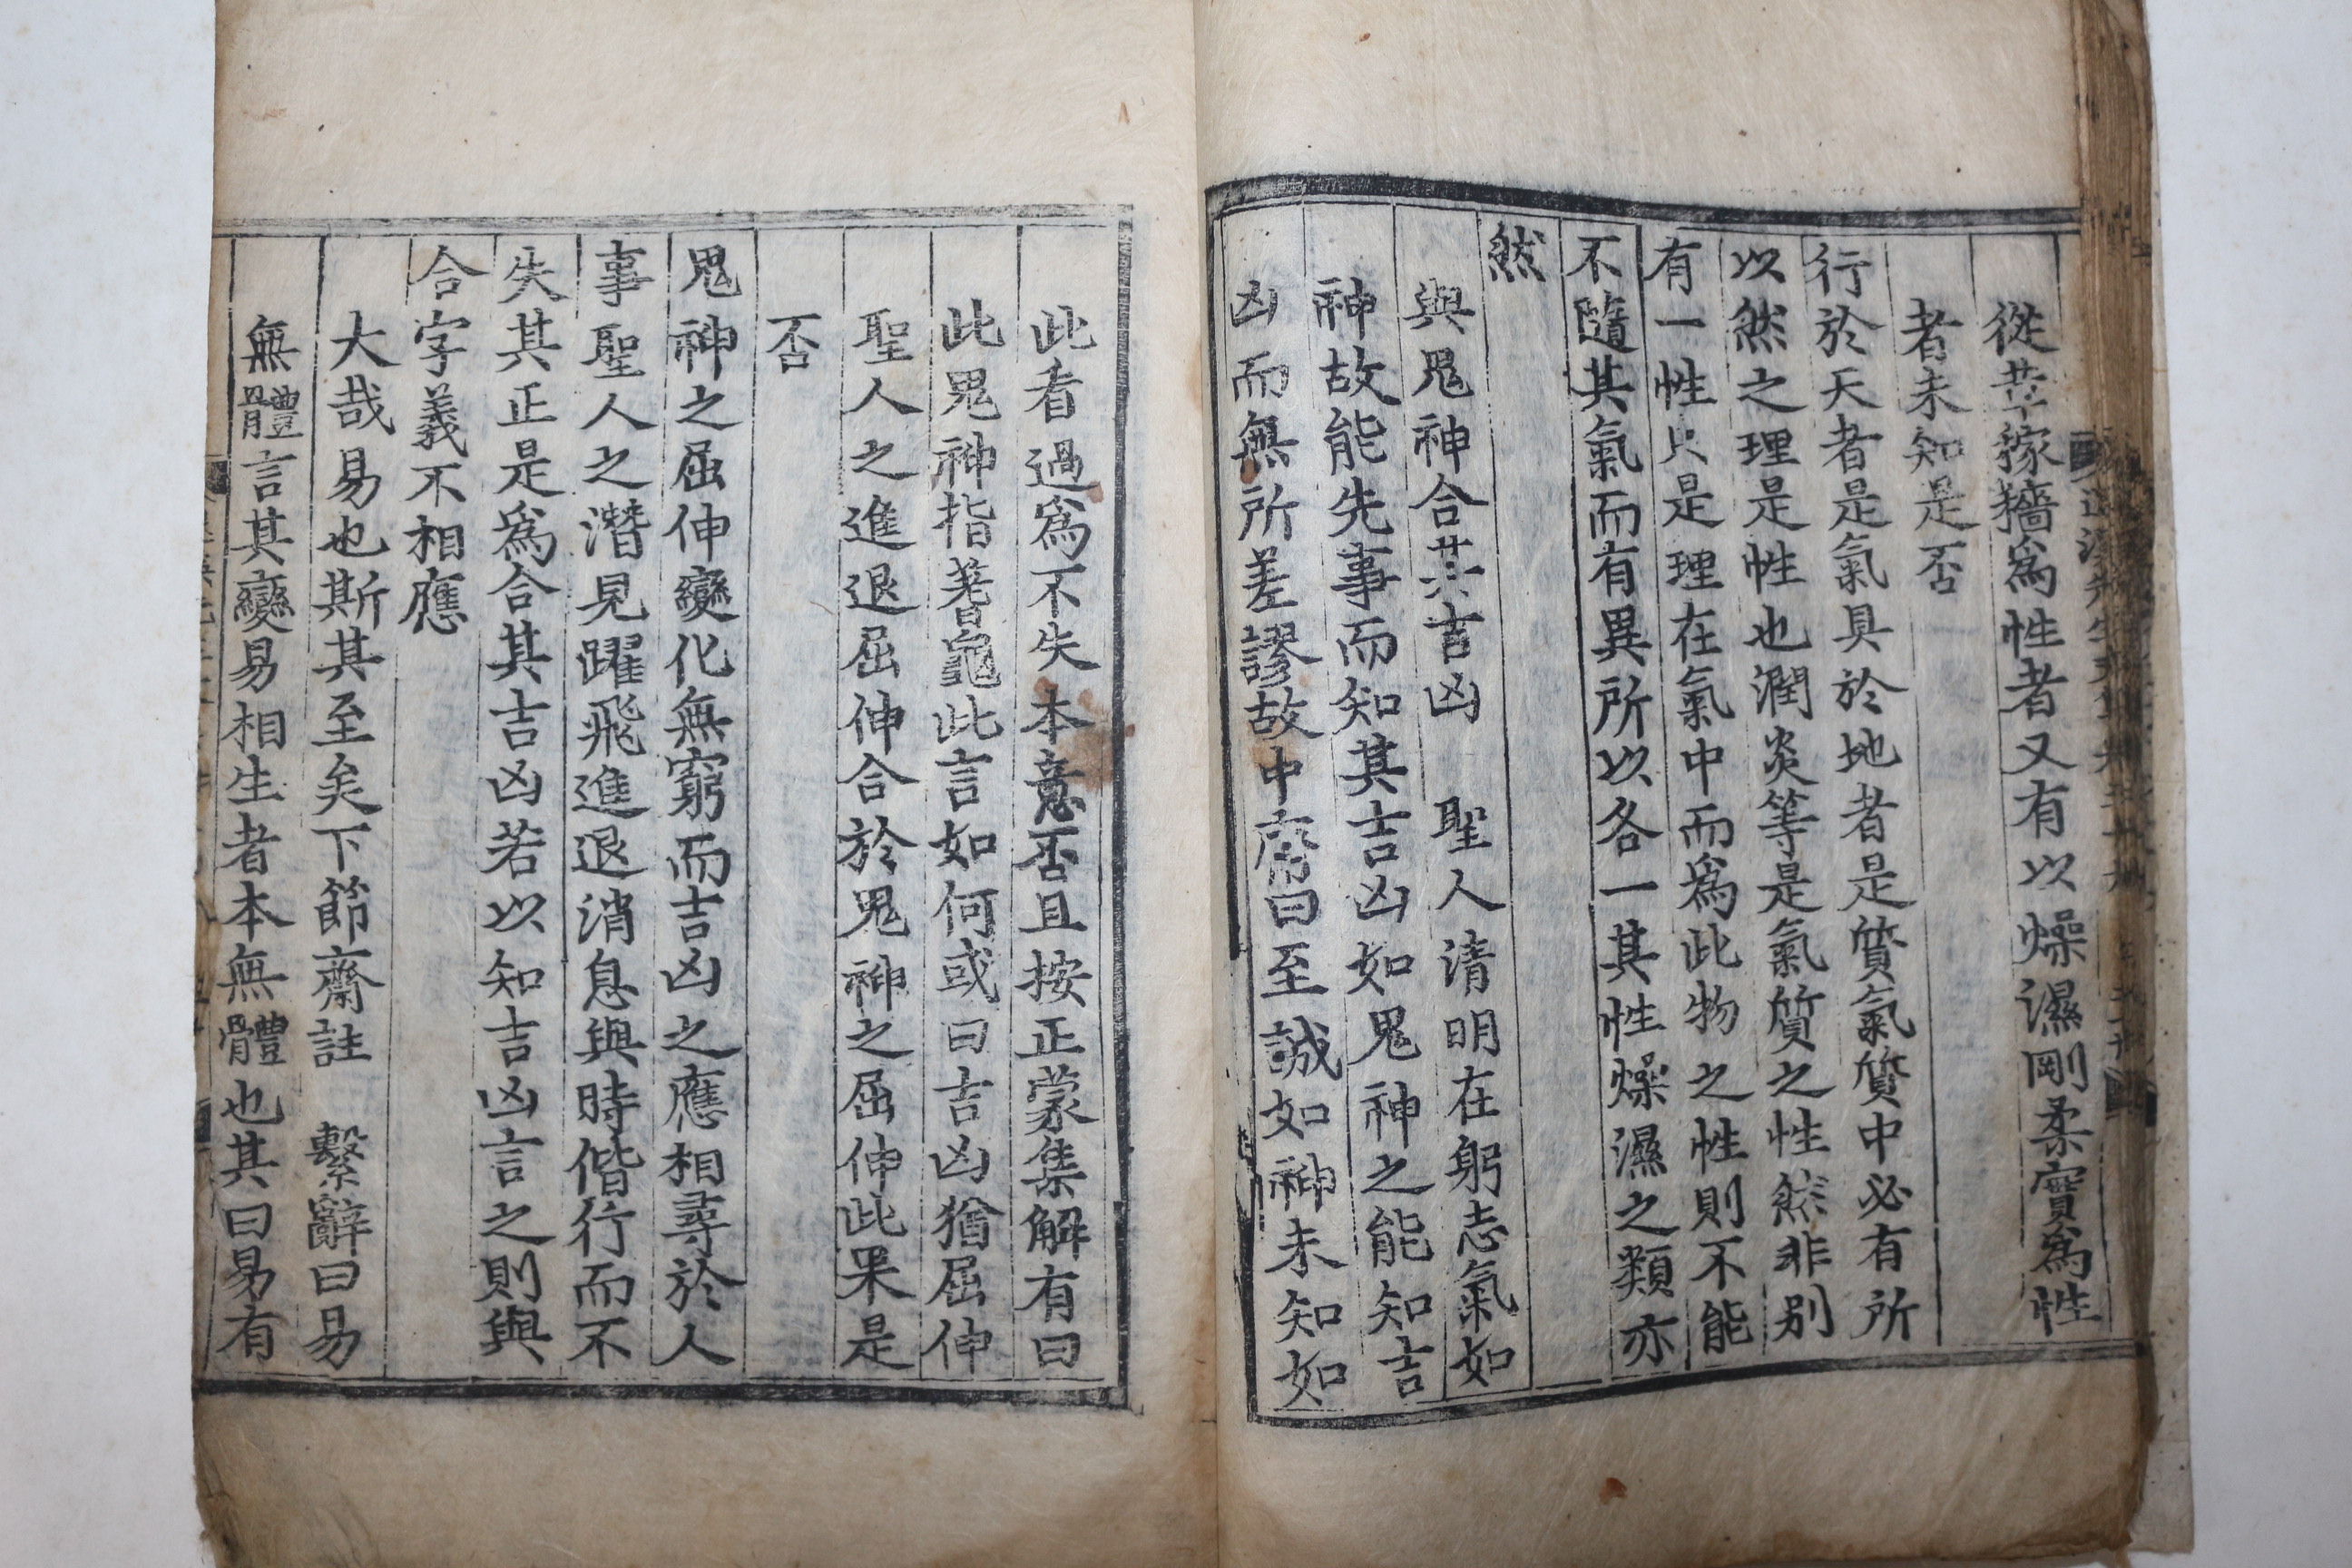 從革稼穡爲性者又有以燥濕剛柔實爲性
者未知是否
行於天者是氣具於地者是質氣質中必有所
以然之理是性也潤炎等是氣質之性然非別
有一性只是理在氣中而爲此物之性則不能
不隨其氣而有異所以各一其性燥濕之類亦
然
與鬼神合其吉凶 聖人淸明在躬志氣如
神故能先事而知其吉凶如鬼神之能知吉
凶而無所差謬故中庸曰至誠如神未知如
此看過爲不失本意否且按正蒙集解有曰
此鬼神指蓍龜此言如何或曰吉凶猶屈伸
聖人之進退屈伸合於鬼神之屈伸此果是
否
鬼神之屈伸變化無窮而吉凶之應相尋於人
事聖人之潛見躍飛進退消息與時偕行而不
失其正是爲合其吉凶若以知吉凶言之則與
合字義不相應
大哉易也斯其至矣下節齋註 繫辭曰易
無體言其變易相生者本無體也其曰易有